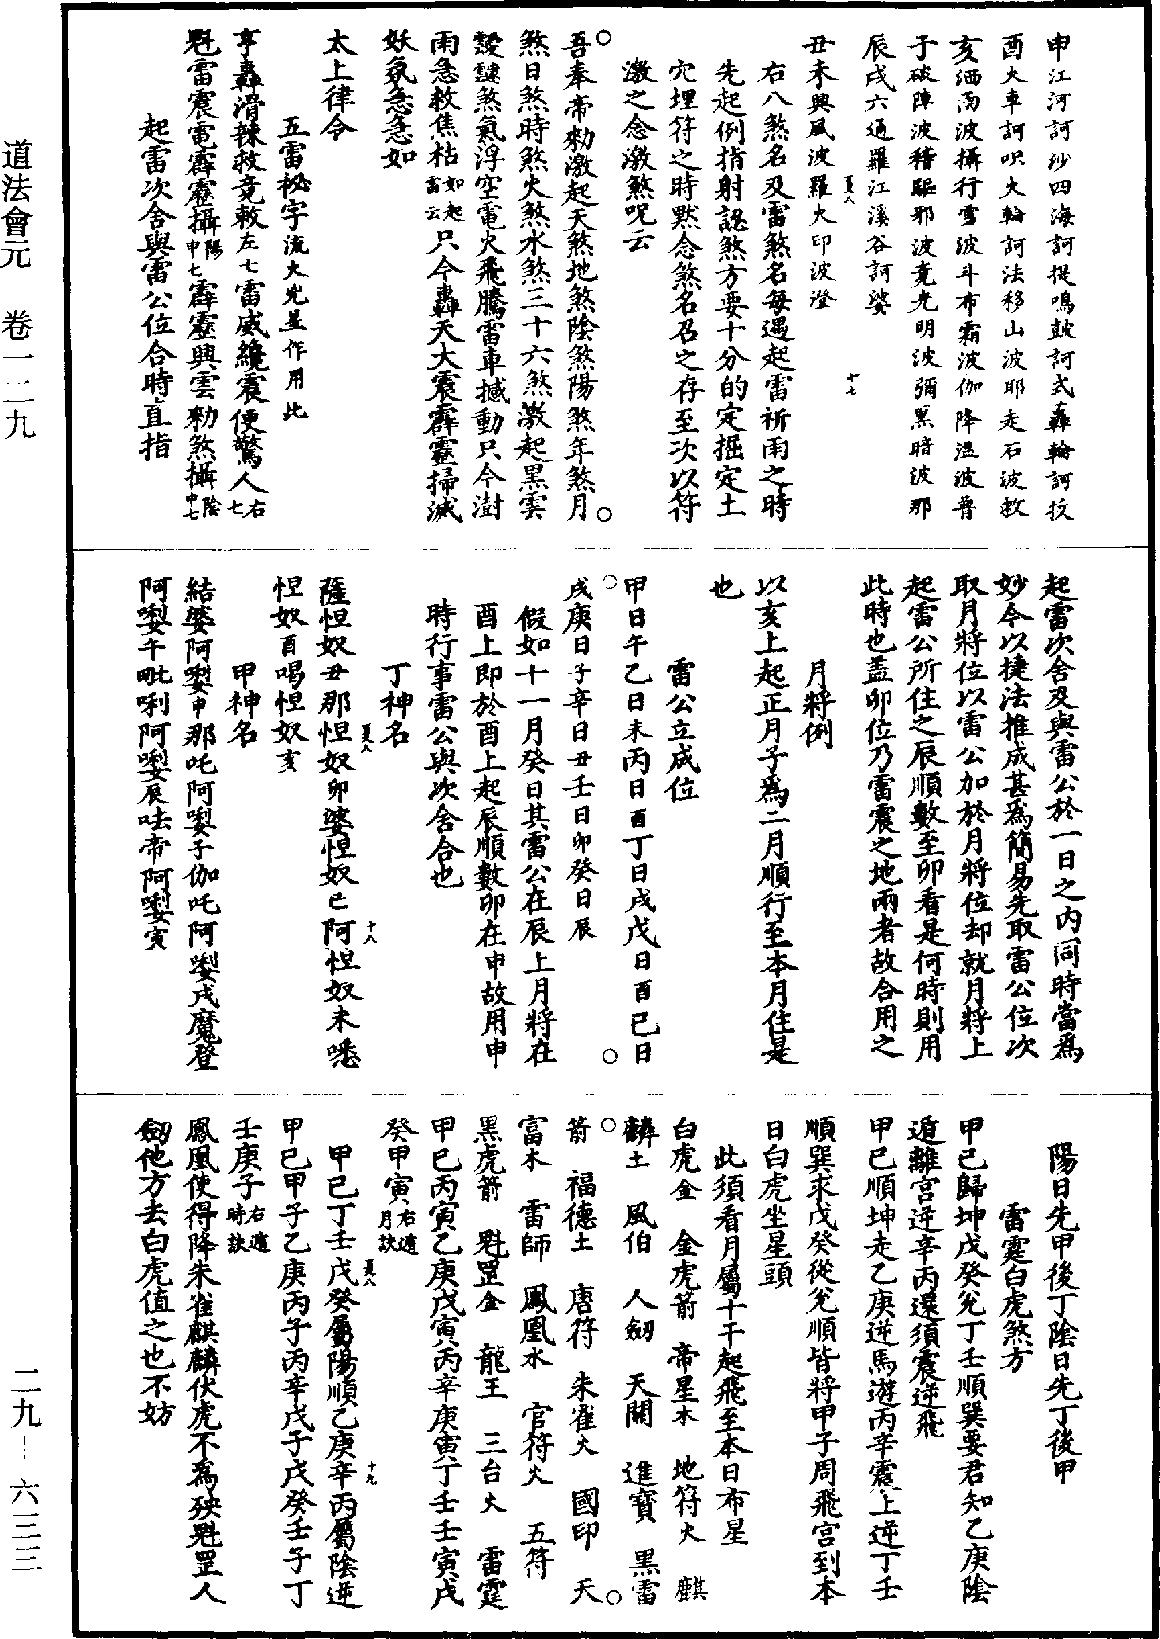 申江河訶沙四海訶提鳴皷訶式轟輪訶抆
酉火車訶呎火輪訶法移山波耶走石波救
亥洒雨波攝行雪波斗布霜波伽降濕波普
子破陣波稽驅邪波竟光明波彌黑暗波那
辰戌六通羅江溪谷訶娑
丑未興風波羅大印波澄
右八煞名及雷煞名每遇起雷祈雨之時
先起例指射認煞方要十分的定掘定土
穴埋符之時默念煞名召之存至次以符
激之念激煞呪云
吾奉帝勑激起天煞地煞陰煞陽煞年煞月
煞日煞時煞火煞水煞三十六煞激起黑雲
靉靆煞氣浮空電火飛騰雷車撼動只今澍
雨急救焦枯如起雷云只今轟天大震霹靂掃滅
妖氛急急如
太上律令
五雷祕字流火光並作用此
亨轟滑辣救竟敕左七雷威纔震便驚人右七
魁雷震電霹靂攝陽申七霹靂興雲勑煞攝陰中七
起雷次舍與雷公位合時直指
起雷次舍及與雷公於一日之內同時當爲
妙今以捷法推成甚爲簡易先取雷公位次
取月將位以雷公加於月將位却就月將上
起雷公所住之辰順數至卯看是何時則用
此時也蓋卯位乃雷震之地雨者故合用之
月將例
以亥上起正月子爲二月順行至本月住是
也
雷公立成位
甲日午乙日未丙日酉丁日戌戊日酉巳日
戌庚日子辛日丑壬日卯癸日辰
假如十一月癸日其雷公在辰上月將在
酉上即於酉上起辰順數卯在申故用申
時行事雷公與次舍合也
丁神名
薩怛奴丑那怛奴卯婆怛奴巳阿怛奴未嚩
怛奴酉喝怛奴亥
甲神名
結婆阿㘑申那吒阿㘑子伽吒阿㘑戌魔登
阿㘑午毗唎阿㘑辰呿帝阿㘑寅
陽日先甲後丁陰日先丁後甲
雷霆白虎煞方
甲己歸坤戊癸兊丁壬順巽要君知乙庚陰
遁離宮逆辛丙還須震逆飛
甲巳順坤走乙庚逆馬遊丙辛震上逆丁壬
順巽求戊癸從兊順皆將甲子周飛宮到本
日白虎坐星頭
此須看月屬十干起飛至本日布星
白虎金　金虎箭　帝星木　地符火　麒
麟土　風伯　人劒　天關　進寶　黑雷
箭　福德土　唐符　朱雀火　國印　天
富木　雷師　鳳凰水　官符火　五符
黑虎箭　魁罡金　龍王　三台火　雷霆
甲巳丙寅乙庚戊寅丙辛庚寅丁壬壬寅戊
癸甲寅右遁月訣
甲巳丁壬戊癸屬陽順乙庚辛丙屬陰逆
甲巳甲子乙庚丙子丙辛戊子戊癸壬子丁
壬庚子右遁時訣
鳳凰使得降朱雀麒麟伏虎不爲殃魁罡人
劒他方去白虎值之也不妨
道法會元　卷一二九
二九－六三三